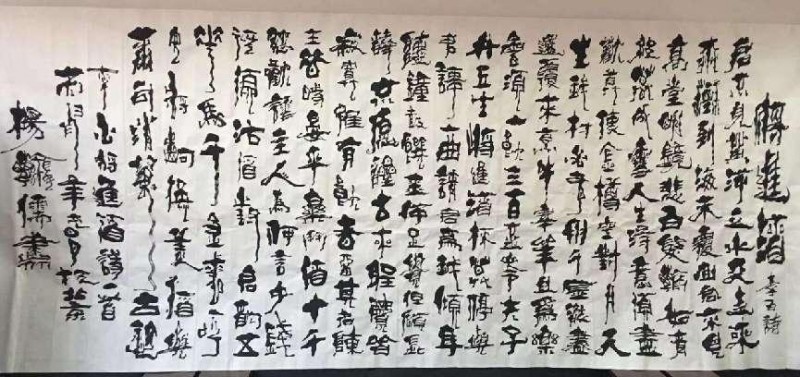 將進酒 李白詩
君不見黃河之水天上來
奔流到海不復回君不見
高堂明鏡悲白髮朝如青
絲暮成雪人生得意須盡
歡莫使金樽空對月天
生我材必有用千金散盡
還復來烹羊宰牛且為樂
會須一飲三百杯岑夫子
丹丘生將進酒杯莫停與
君歌一曲請君為我傾耳
聽鐘鼓饌玉不足貴但願長
醉不願醒古來聖賢皆
寂寞唯有飲者留其名陳
王昔時宴平樂斗酒十千
恣歡謔主人為何言少錢
徑須沽酒對君酌五
花馬千金裘呼
兒將出換美酒與
爾同銷萬古愁
李白將進酒詩一首
年
楊 書